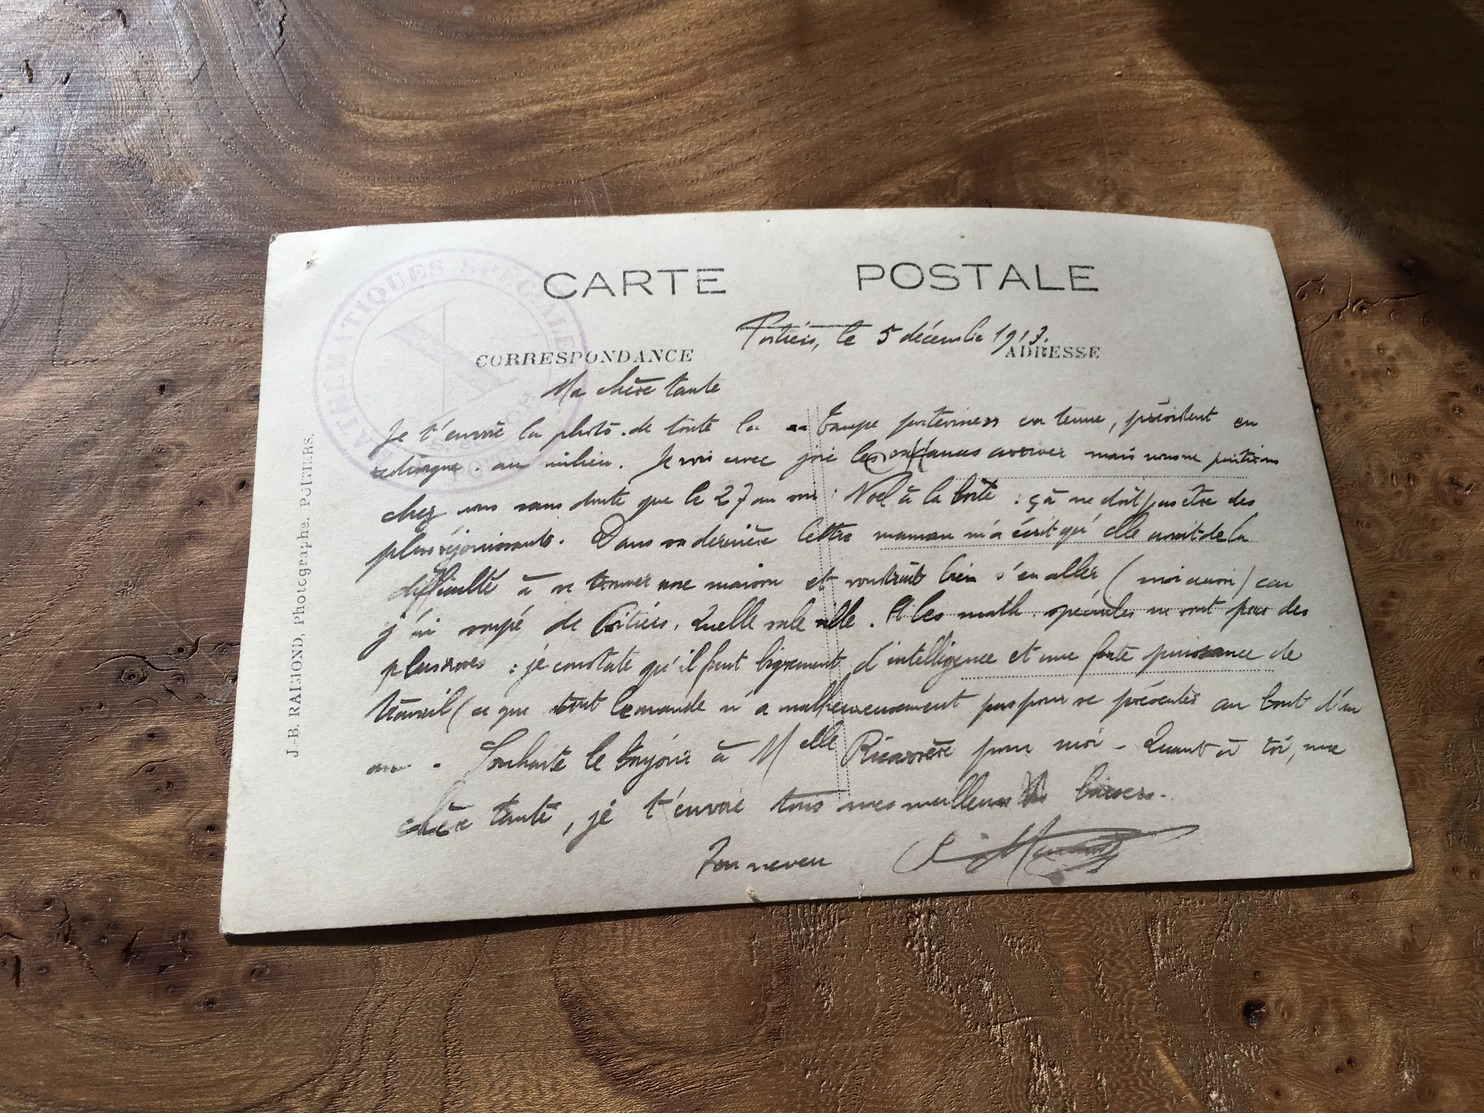 CARTE POSTALE
MATHÉMATIQUES SPÉCIALES
X
Poitiers, le 5 décembre 1913.
CORRESPONDANCE
ADRESSE
Ma chère tante
Je t'envoie la photo de toute la taupe en tenue, président en
redingote au milieu. Je vois avec joie les vacances arriver mais nous ne partirons
chez nous sans doute que le 27 au soir : Noël à la boîte : çà ne doit pas être des
plus réjouissants. Dans sa dernière lettre maman m'a écrit qu'elle avait de la
difficulté à se trouver une maison et voudrait bien s'en aller (moi aussi) car
j'ai soupé de Poitiers. Quelle sale ville. Et les math. spéciales ne sont pas des
plus roses : je constate qu'il faut bigrement d'intelligence et une forte puissance de
travail (ce que tout le monde n'a malheureusement pas pour se présenter au bout d'un
an. Souhaite le bonjour à Melle Ricarrère pour moi - Quant à toi, ma
chère tante, je t'envoie tous mes meilleurs baisers.
Ton neveu
J-B. RAIMOND, Photographe, POITIERS.